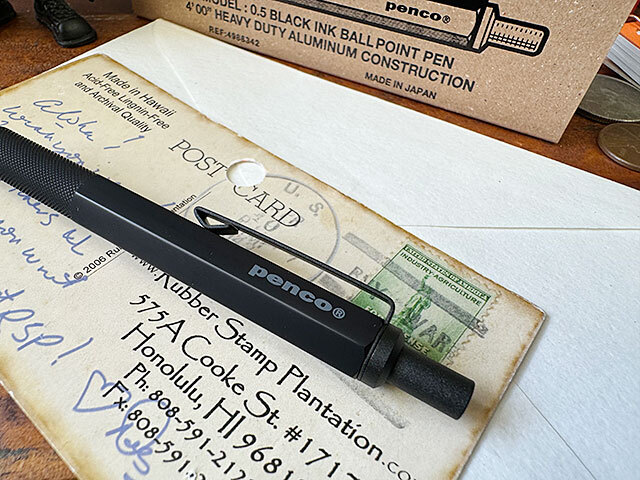 penco®
MODEL : 0.5 BLACK INK BALLPOINT PEN
4' 00" HEAVY DUTY ALUMINUM CONSTRUCTION
REF:4968342
MADE IN JAPAN
Made in Hawaii
Acid-Free Lignin-Free
and Archival Quality
Aloha!
POST CARD
U. S.
INDUSTRY AGRICULTURE
penco®
© 2006
www.Rubber Stamp Plantation.co
575A Cooke St. #171
Honolulu, HI 9681
Ph: 808-591-212
Fx: 808-591-2
RSP!